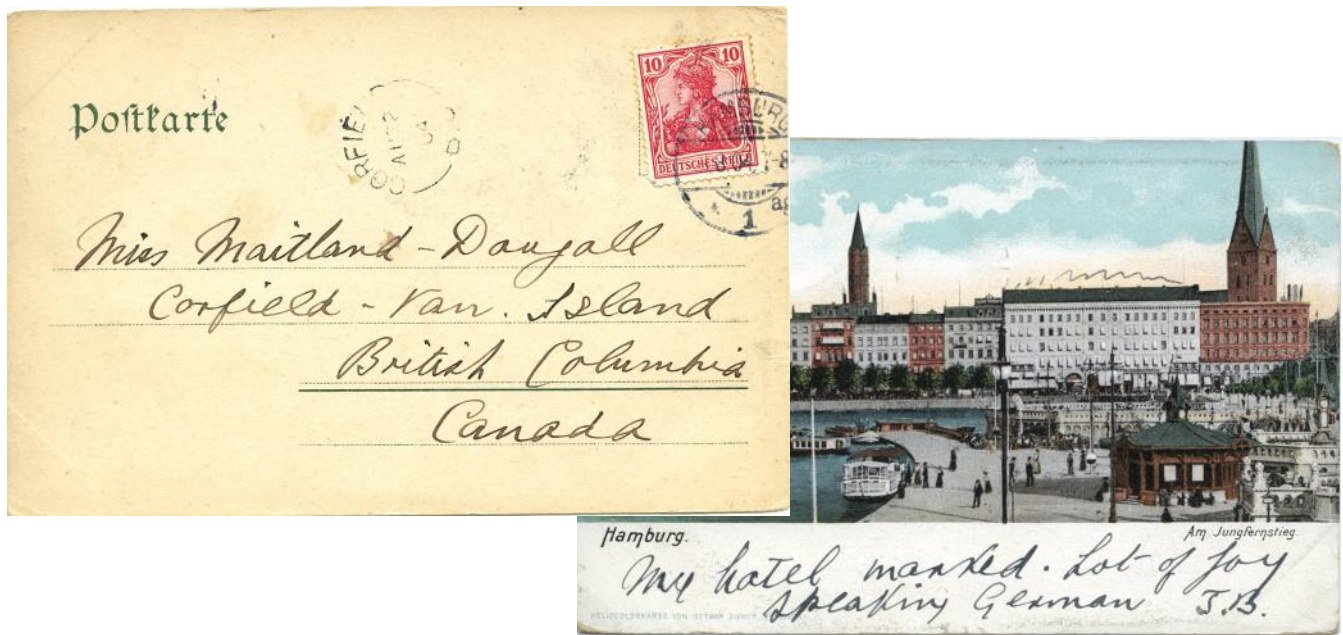 Postkarte
10 10
DEUTSCHES REICH
CORFIELD
AU 22
04
B.C.
1
Miss Maitland-Dougall
Corfield - Van. Island
British Columbia
Canada
Hamburg.
Am Jungfernstieg.
My hotel marked. Lot of joy
speaking German J.B.
HELIOCOLORKARTE VON OTTMAR ZIEHER,